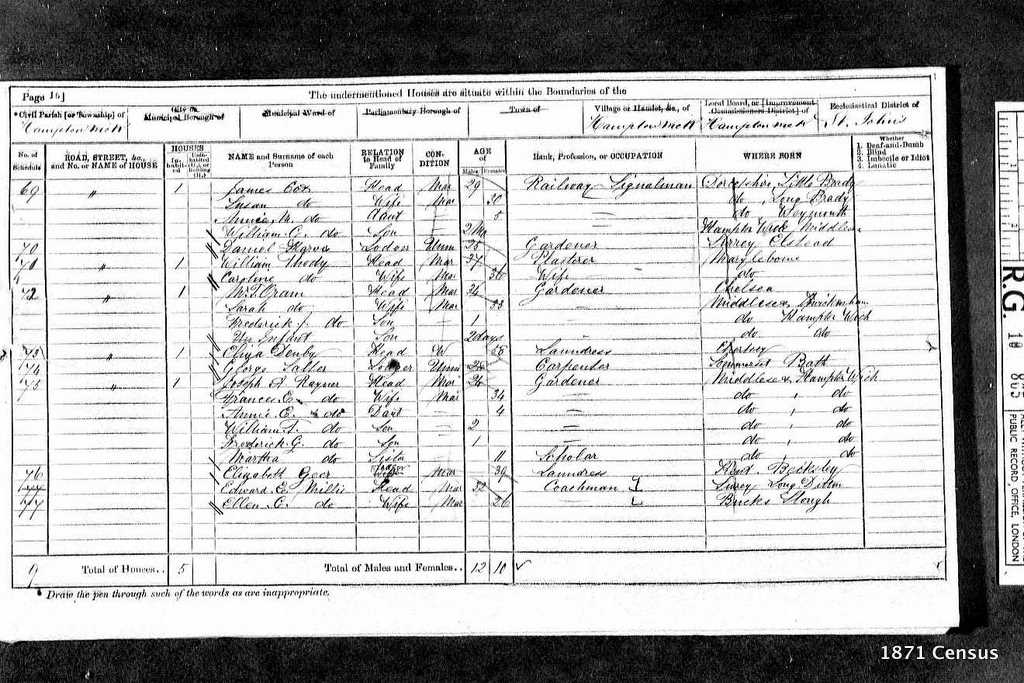 Page 16]
The undermentioned Houses are situate within the Boundaries of the
*Civil Parish [or Township] of
City or Municipal Borough of
Municipal Ward of
Parliamentary Borough of
Town of
Village or Hamlet, &c., of
Local Board, or [Improvement Commissioners District] of
Ecclesiastical District of
Hampton Wick Hampton Wick Hampton Wick St. John's
No. of Schedule
ROAD, STREET, &c., and No. or NAME of HOUSE
HOUSES
NAME and Surname of each Person
RELATION to Head of Family
CONDITION
AGE of
Males Females
Rank, Profession, or OCCUPATION
WHERE BORN
Whether
1. Deaf-and-Dumb
2. Blind
3. Imbecile or Idiot
4. Lunatic
69 " 1 James Cox Head Mar 29 Railway Signalman Dorsetshire, Little Bredy
Susan do Wife Mar 30 — do, Long Bredy
Annie M. do 5 — do Weymouth
William G. do Son — 2 Mo Hampton Wick Middlesex
70 Daniel Lodger Unm 25 Gardener Surrey Elstead
71 " 1 William Head Mar 37 Plasterer Marylebone
Caroline do Wife Mar 36 Wife do
72 " 1 Oram Head Mar 34 Gardener Chelsea
Sarah do Wife Mar 33 — Middlesex Twickenham
Frederick J. do Son 1 do Hampton Wick
Un Infant Son 2 days do do
73 " 1 Eliza Denby Head W 58 Laundress Chertsey
74 George Salter Lodger Unm Carpenter Somerset Bath
75 " 1 Joseph Rayner Head Mar 26 Gardener Middlesex Hampton Wick
Frances E. do Wife Mar 34 — do, do
Annie E. do Daur 4 — do, do
William do Son 2 — do, do
Frederick G. do Son 1 — do, do
Martha do Sister 11 Scholar do, do
76 Elizabeth Geer Mar 39 Laundress Kent
Edward E. Millis Head Mar 32 Coachman Surrey Long Ditton
77 Ellen C. do Wife Mar 26 — Bucks Slough
9 Total of Houses.. 5 Total of Males and Females.. 12 10
* Draw the pen through such of the words as are inappropriate.
R.G. 10
865
PUBLIC RECORD OFFICE, LONDON
1871 Census